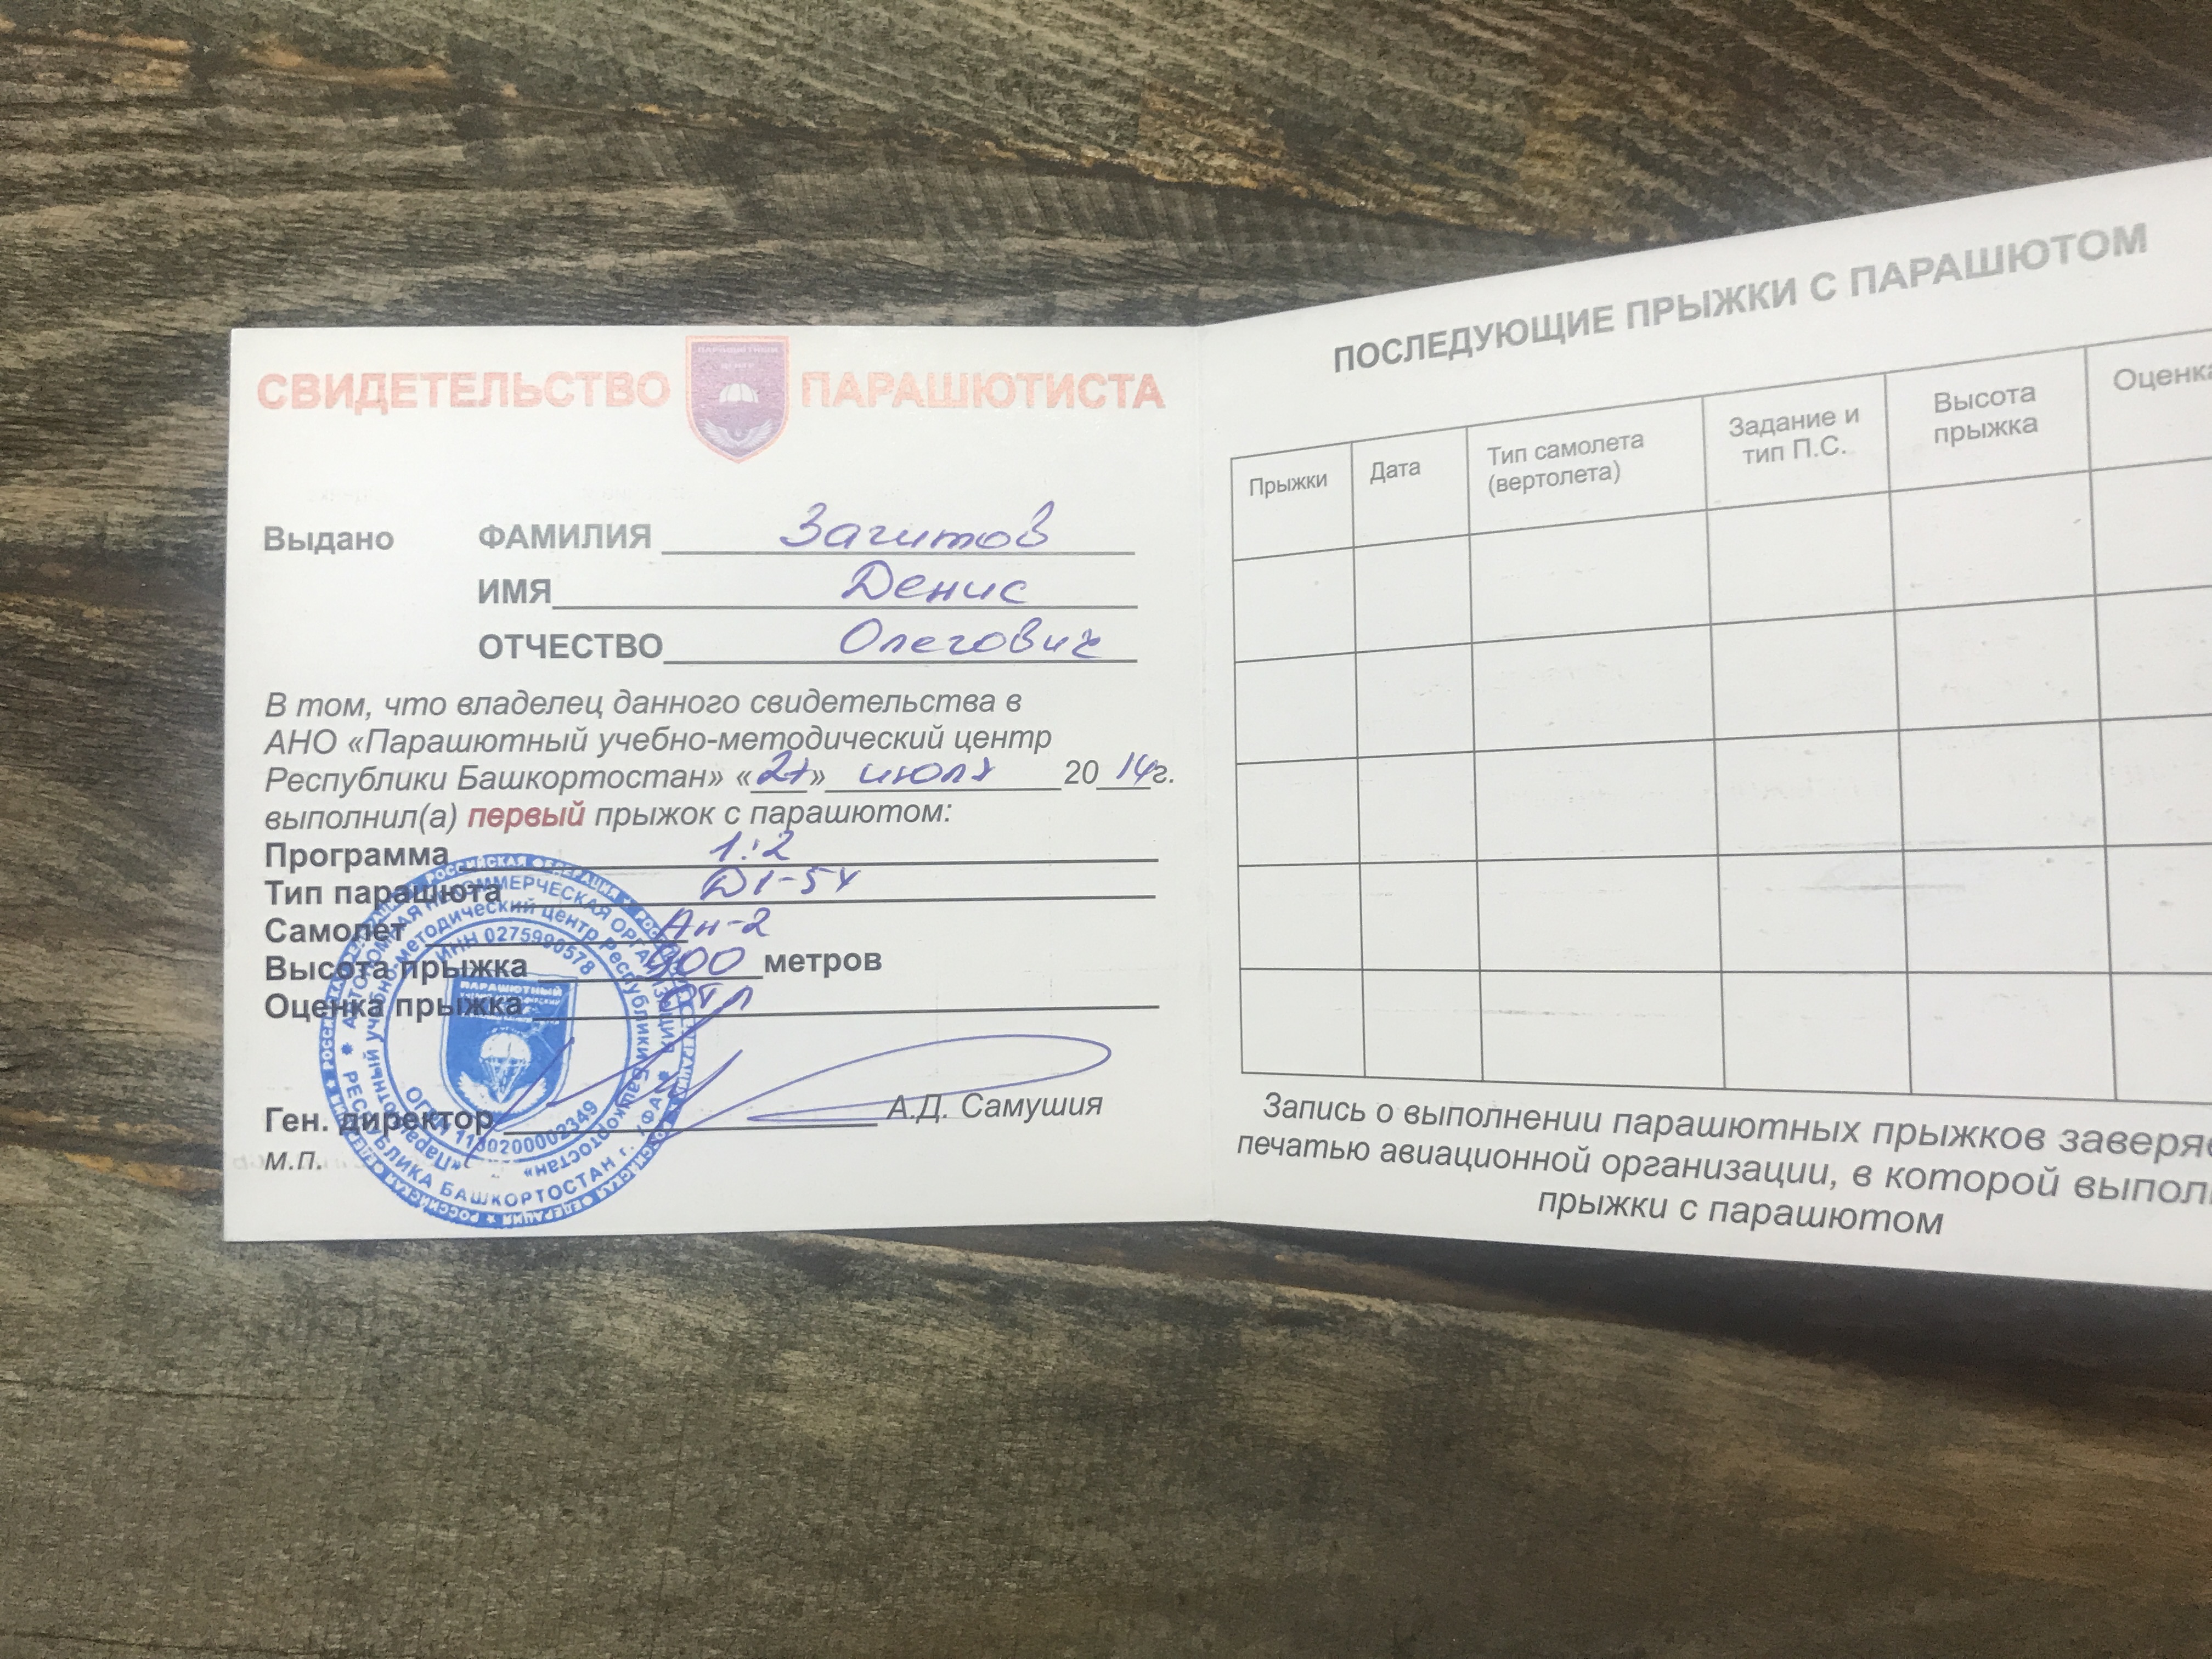 СВИДЕТЕЛЬСТВО ПАРАШЮТИСТА
Выдано ФАМИЛИЯ Загитов
ИМЯ Денис
ОТЧЕСТВО Олегович
В том, что владелец данного свидетельства в
АНО «Парашютный учебно-методический центр
Республики Башкортостан» «27» июля 2014г.
выполнил(а) первый прыжок с парашютом:
Программа 1:2
Тип парашюта Д1-5У
Самолет Ан-2
Высота прыжка 900 метров
Оценка прыжка отл
Ген. директор А.Д. Самушия
м.п.
РОССИЙСКАЯ ФЕДЕРАЦИЯ
АВТОНОМНАЯ НЕКОММЕРЧЕСКАЯ ОРГАНИЗАЦИЯ
РЕСПУБЛИКА БАШКОРТОСТАН г. УФА
«Парашютный учебно-методический центр Республики Башкортостан»
ИНН 0275900578
ОГРН 1130200002349
ПАРАШЮТНЫЙ
ПОСЛЕДУЮЩИЕ ПРЫЖКИ С ПАРАШЮТОМ
Прыжки Дата Тип самолета (вертолета) Задание и тип П.С. Высота прыжка Оценка
Запись о выполнении парашютных прыжков заверя
печатью авиационной организации, в которой выпол
прыжки с парашютом